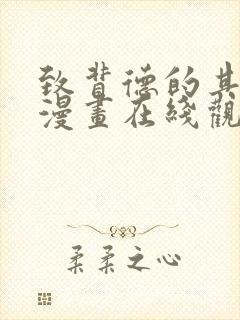 致背德的其
漫畫在綫觀
柔柔之心